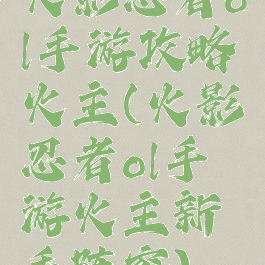 火影忍者o
l手游攻略
火主(火影
忍者ol手
游火主新
手阵容)